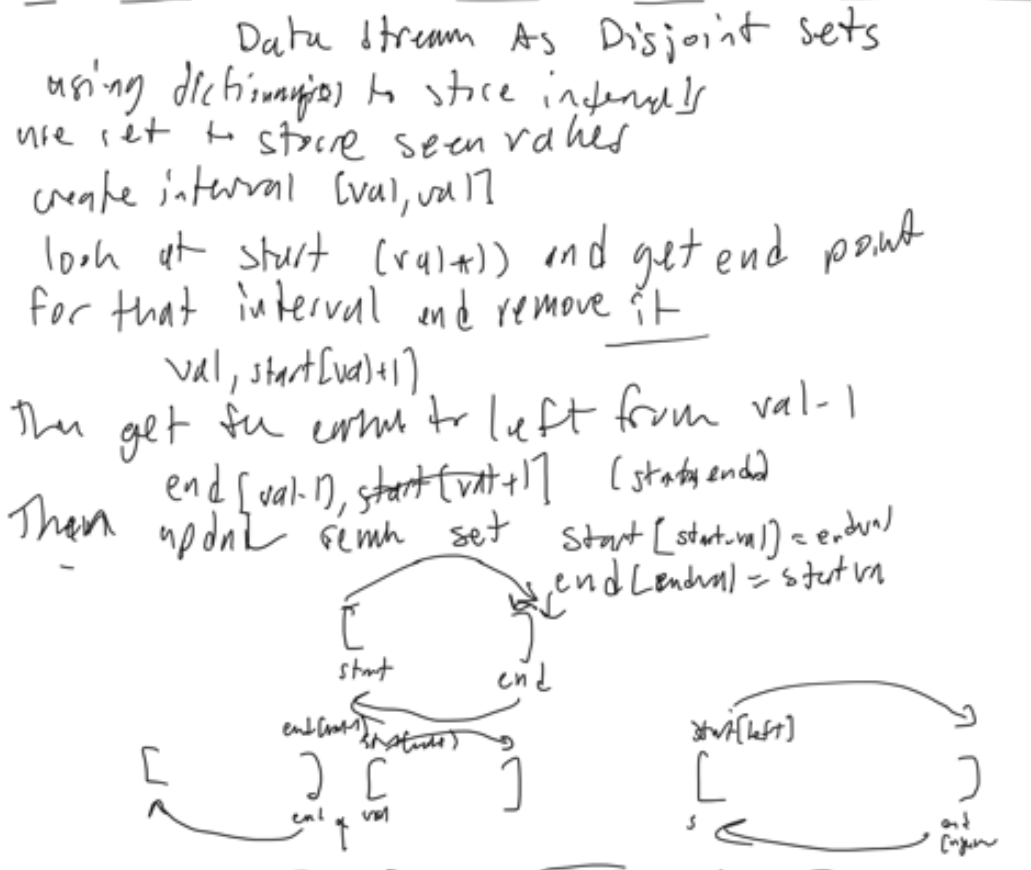 Data Stream As Disjoint sets
using dictionaries to store intervals
use set to store seen values
create interval [val, val]
look at start (val+1) and get end point
for that interval and remove it
val, start[val+1]
Then get to left from val-1
end [val-1], start [val+1] [start, end]
Then update set start [start-val] = endval
end [endval] = startval
start
end
start[left]
end val
s end